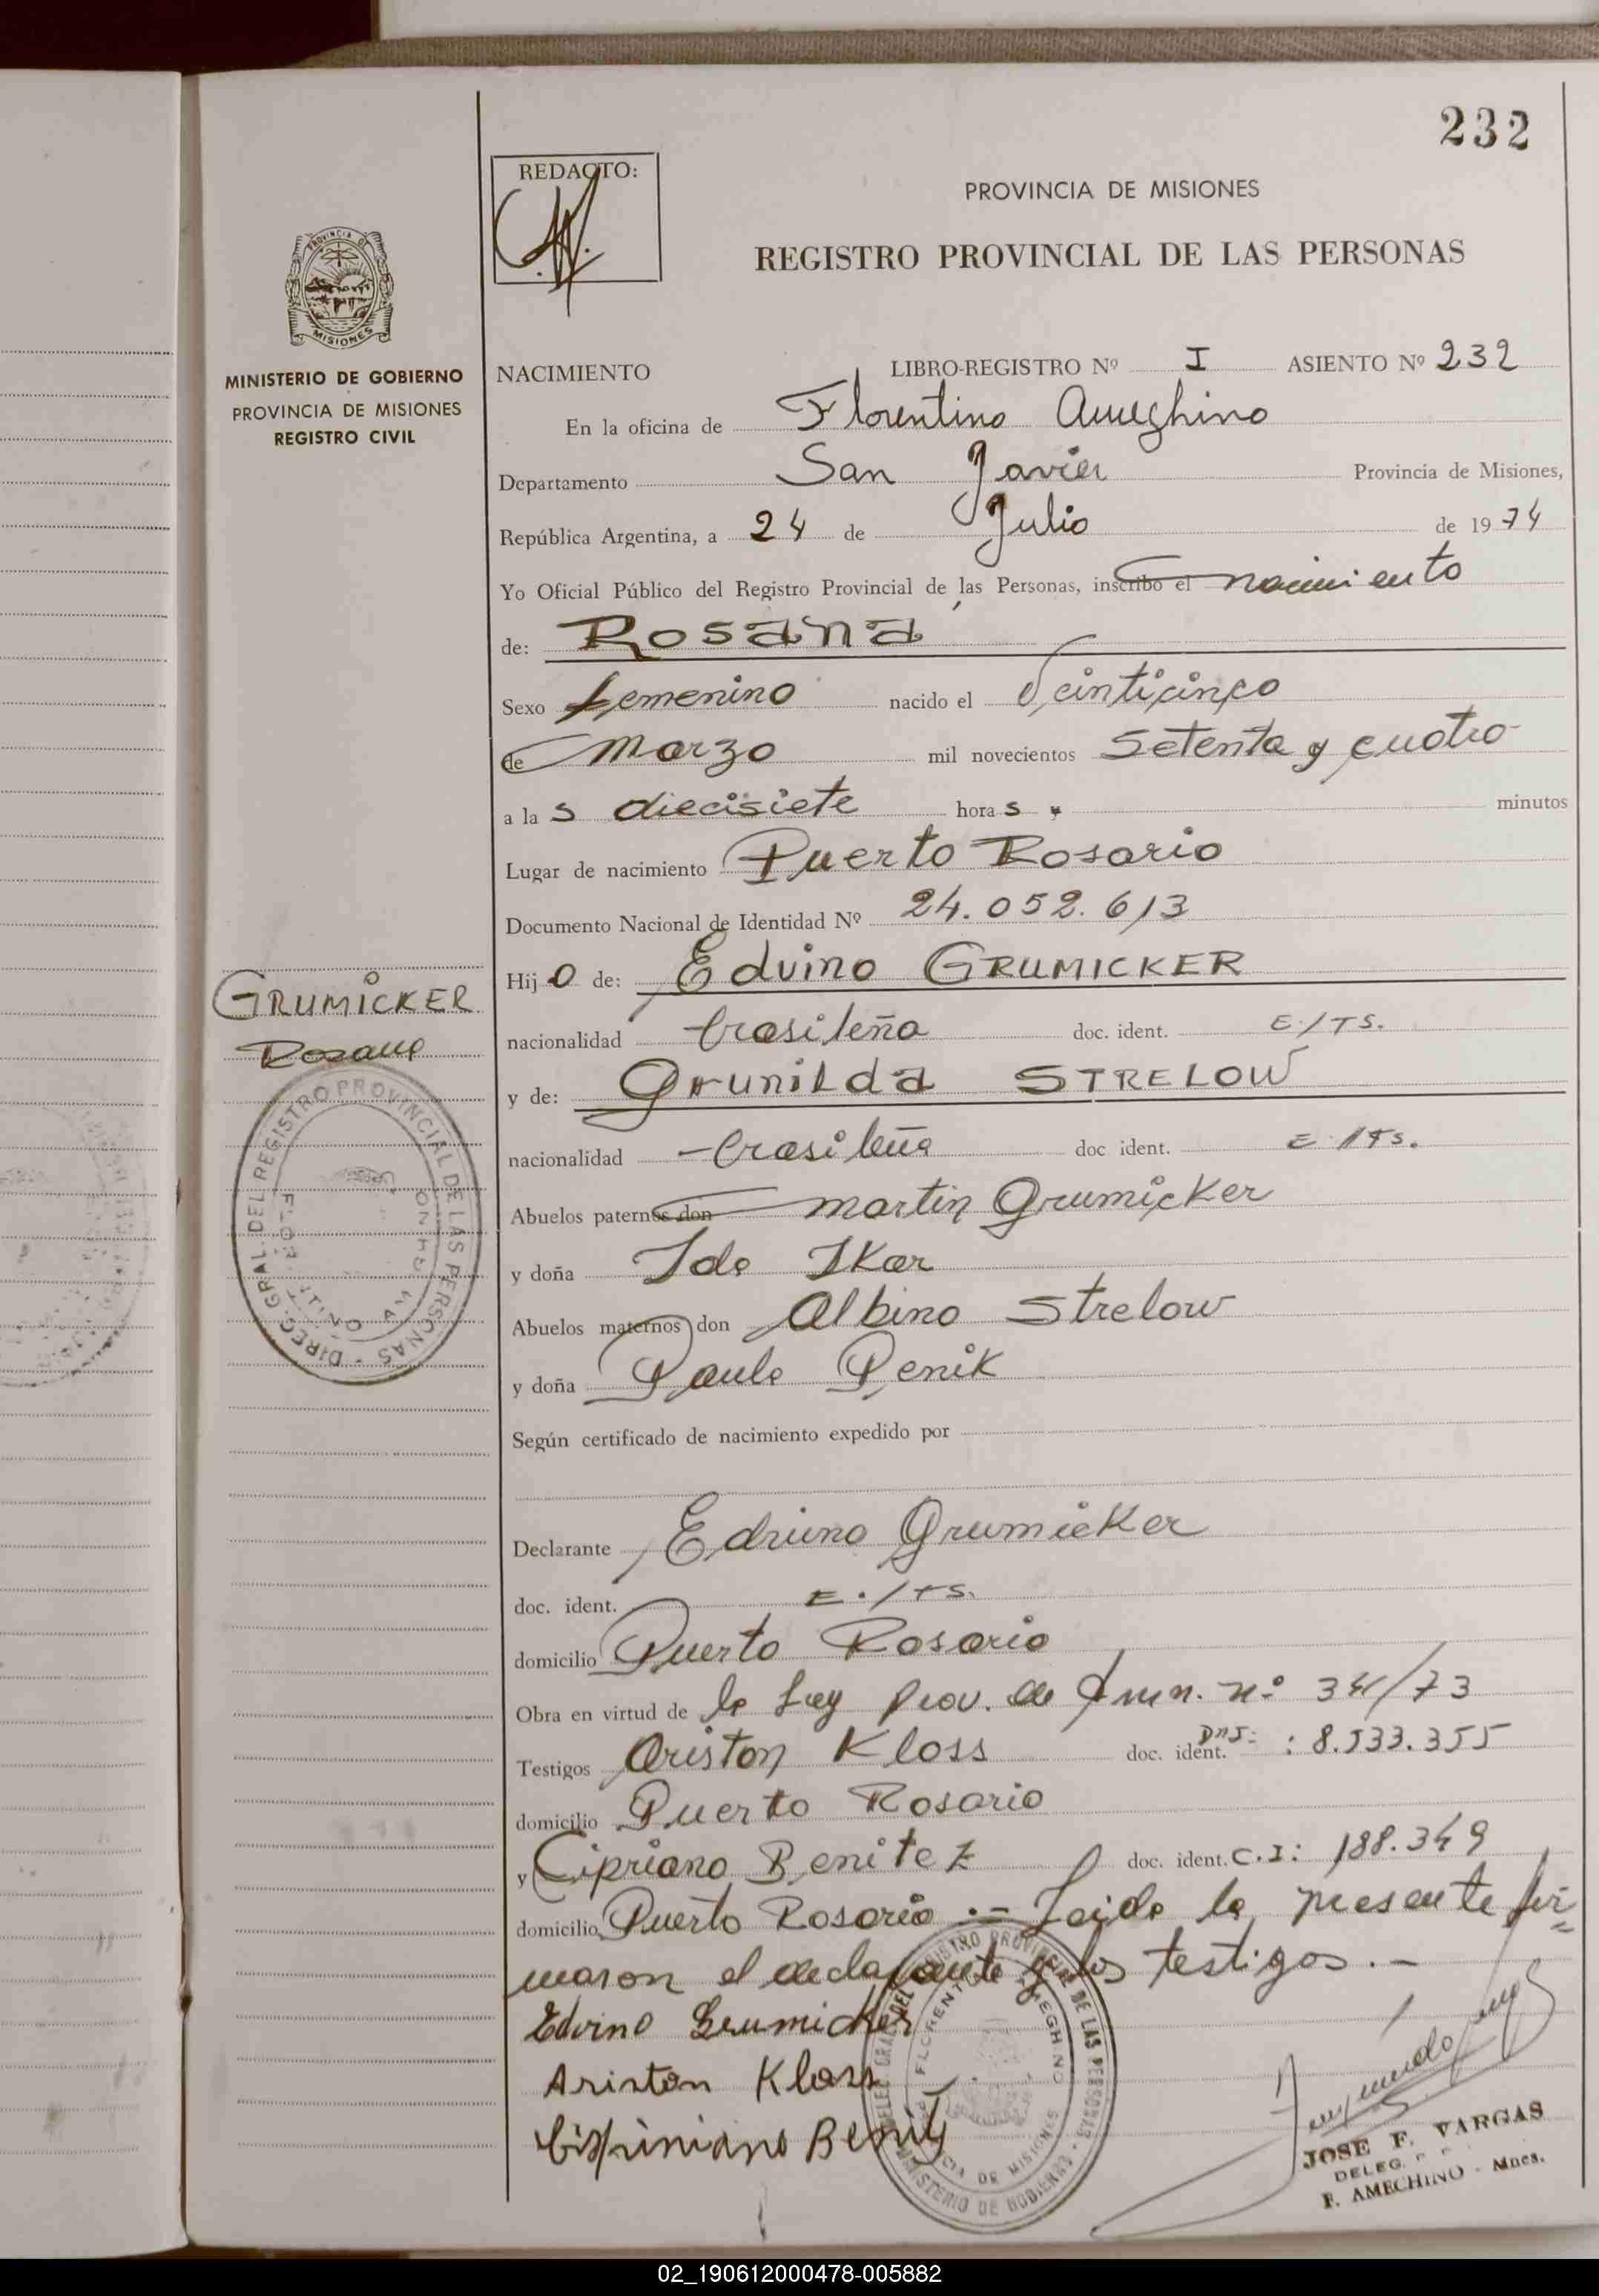 232
REDACTO:
PROVINCIA DE MISIONES
REGISTRO PROVINCIAL DE LAS PERSONAS
PROVINCIA DE
MISIONES
MINISTERIO DE GOBIERNO
PROVINCIA DE MISIONES
REGISTRO CIVIL
NACIMIENTO LIBRO-REGISTRO Nº I ASIENTO Nº 232
En la oficina de Florentino Ameghino
Departamento San Javier Provincia de Misiones,
República Argentina, a 24 de Julio de 1974
Yo Oficial Público del Registro Provincial de las Personas, inscribo el nacimiento
de: Rosana
Sexo femenino nacido el Veinticinco
de Marzo mil novecientos Setenta y cuatro
a las diecisiete horas y minutos
Lugar de nacimiento Puerto Rosario
Documento Nacional de Identidad Nº 24.052.613
Hijo de: Edvino GRUMICKER
GRUMICKER
Rosana
nacionalidad brasileña doc. ident. E./TS.
y de: Grunilda STRELOW
nacionalidad brasileña doc ident. E./TS.
Abuelos paternos don Martin Grumicker
y doña Ida IKar
Abuelos maternos don Albino Strelow
y doña Paula Penik
DIREG. GRAL. DEL REGISTRO PROVINCIAL DE LAS PERSONAS
Según certificado de nacimiento expedido por
Declarante Edvino Grumicker
doc. ident. E./TS.
domicilio Puerto Rosario
Obra en virtud de la Ley Prov. de Amn. nº 341/73
Testigos Ariston Kloss doc. ident. DNI: 8.533.355
domicilio Puerto Rosario
y Cipriano Benitez doc. ident. C.I: 188.349
domicilio Puerto Rosario .- Leida la presente fir=
maron el declarante y los testigos.-
Edvino Grumicker
Ariston Kloss
FLORENTINO AMEGHINO
MINISTERIO DE GOBIERNO
JOSE F. VARGAS
DELEG.
F. AMECHINO - Mnes.
02_190612000478-005882